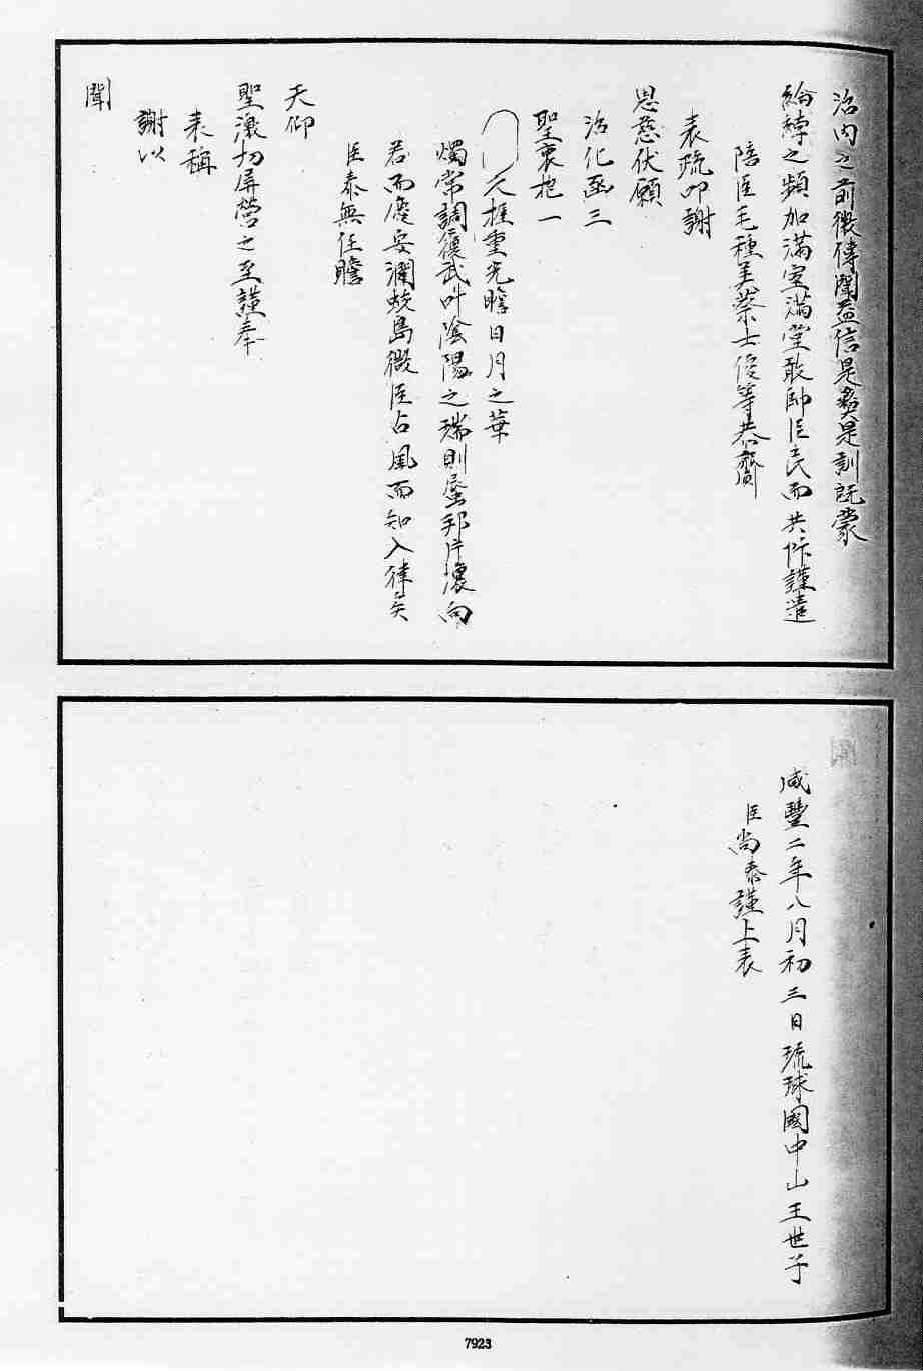 治內之前徽傳聞益信是彝是訓既蒙
綸綍之頻加滿室滿堂敢帥臣民而共忭謹遣
陪臣毛種美蔡士俊等恭齎
表疏叩謝
恩慈伏願
治化函三
聖衷抱一
天握重光瞻日月之華
燭常調復武叶陰陽之瑞則蜃邦片壤向
若而慶安瀾蛟島微臣占風而知入律矣
臣泰無任瞻
天仰
聖激切屏營之至謹奉
表稱
謝以
聞
咸豐二年八月初三日琉球國中山王世子
臣尚泰謹上表
7923